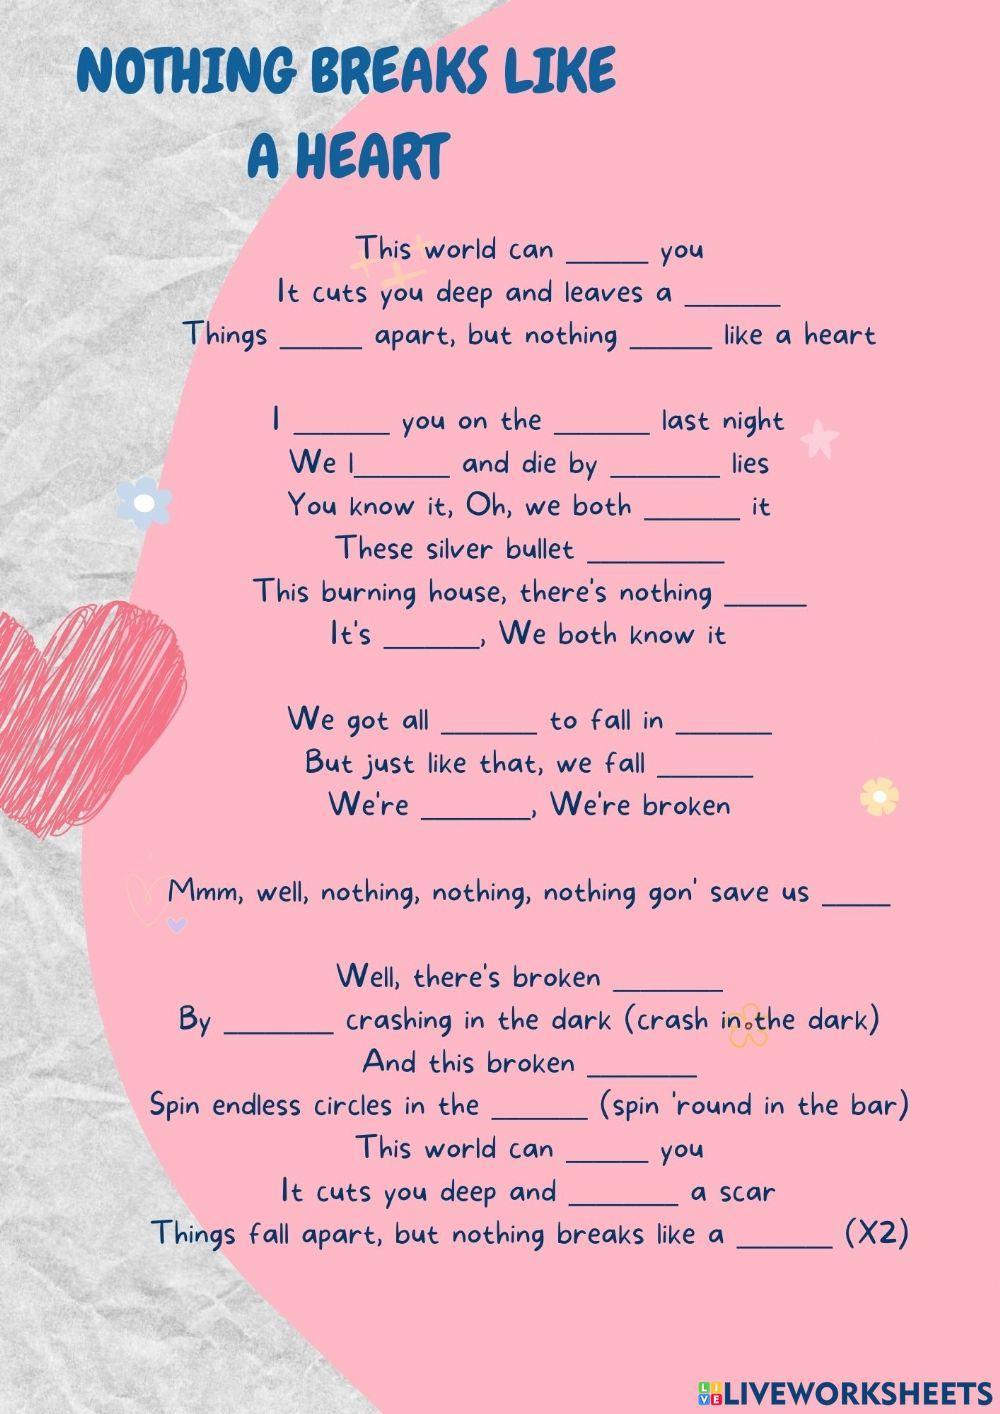 NOTHING BREAKS LIKE
A HEART
This world can ______ you
It cuts you deep and leaves a _______
Things ______ apart, but nothing ______ like a heart
I _______ you on the _______ last night
We l_______ and die by ________ lies
You know it, Oh, we both _______ it
These silver bullet __________
This burning house, there's nothing ______
It's _______, We both know it
We got all _______ to fall in _______
But just like that, we fall _______
We're ________, We're broken
Mmm, well, nothing, nothing, nothing gon' save us _____
Well, there's broken ________
By ________ crashing in the dark (crash in the dark)
And this broken ________
Spin endless circles in the _______ (spin 'round in the bar)
This world can ______ you
It cuts you deep and ________ a scar
Things fall apart, but nothing breaks like a _______ (X2)
LIVE LIVEWORKSHEETS